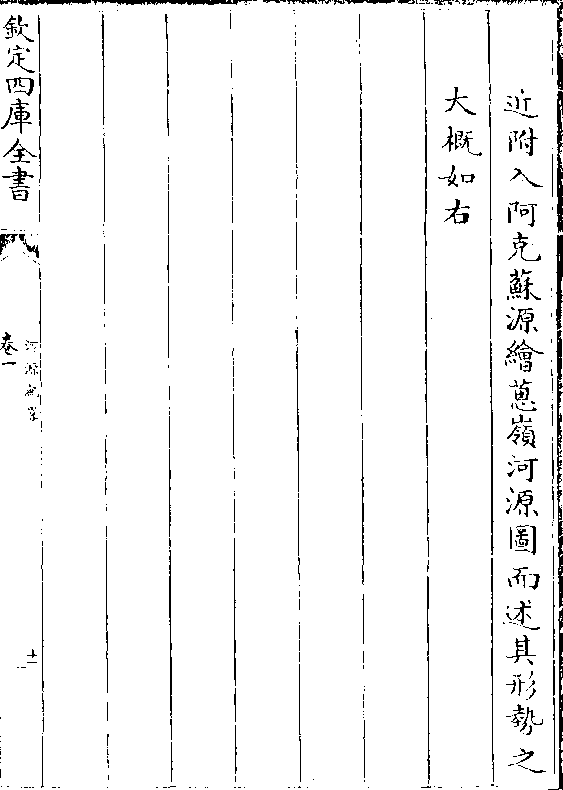 近附入阿克蘇源繪蔥嶺河源圖而述其形勢之
大概如右
欽定四庫全書
卷一
河源紀畧
十一